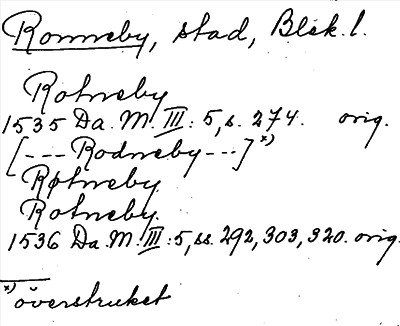 Ronneby, stad, Blek. l.
Rotneby
1535 Da. M. III: 5, s. 274. orig.
[--- Rodneby ---] *)
Røtneby
Rotneby
1536 Da. M. III: 5, ss. 292, 303, 320. orig.
*) överstruket